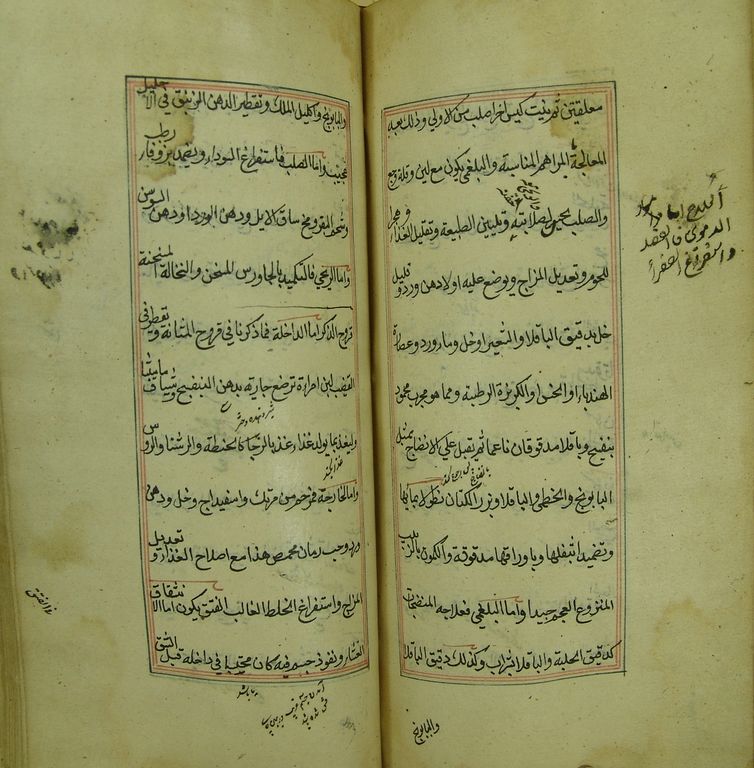 معلقتين ثم بيت كيس اخر اصلب من الاولي وذلك بعيد
المعالجة المراهم المناسبة والبلغمي يكون مع لين وقلة وجع
والصلب يحس لصلابته وتليين الطبيعة وتقليل الغذاء وهجر
للحوم وتعديل المزاج ويوضع عليه اولا دهن ورد وقليل
خل بدقيق الباقلا والشعير او خل وماء ورد وعصارة
الهندباء او الخس او الكزبرة الرطبة ومما هو مجرب محمود
بنفسج وباقلا مدقوقان ناعما ثم تقبل علي الانضاج بمثل
البابونج والخطمي والباقلا وبزر الكتان نطولا بمايها
وتضميدا بثفلها وباوراقها مدقوقة والكمون بالزبيب
المنزوع العجم جيدا واما البلغمي فعلاجه المنضجات
كدقيق الحلبة والباقلا بشراب وكذلك دقيق الباقلا
والبابونج
والبابونج واكليل الملك وتقطير الدهن الزنبق في الاحليل
عجيب واما الصلب فاستفراغ السوداء ويضمد بزوفا رطب
وشحم البقر ومخ ساق الايل ودهن الورد او دهن السوسن
واما الريحي فالتكميد بالجاورس المسخن والنخالة المسخنة
قروح الذكر اما الداخلة فما ذكرنا في قروح المثانة وتقطر في
القضيب لبن امراة ترضع جارية بدهن البنفسج وشياف ماميثا
وليغذ بما يولد غذاء غذيا لزجا كالحنطة والرشتا والروس
واما الخارجة فمرهم من مرتك واسفيداج وخل ودهن
ورد وحب رمان محمص هذا مع اصلاح الغذاء وتعديل
المزاج واستفراغ الخلط الغالب الفتق يكون اما لانشقاق
الغشاء ونفوذ جسم فيه كان محتبسا في داخله قبل الشق